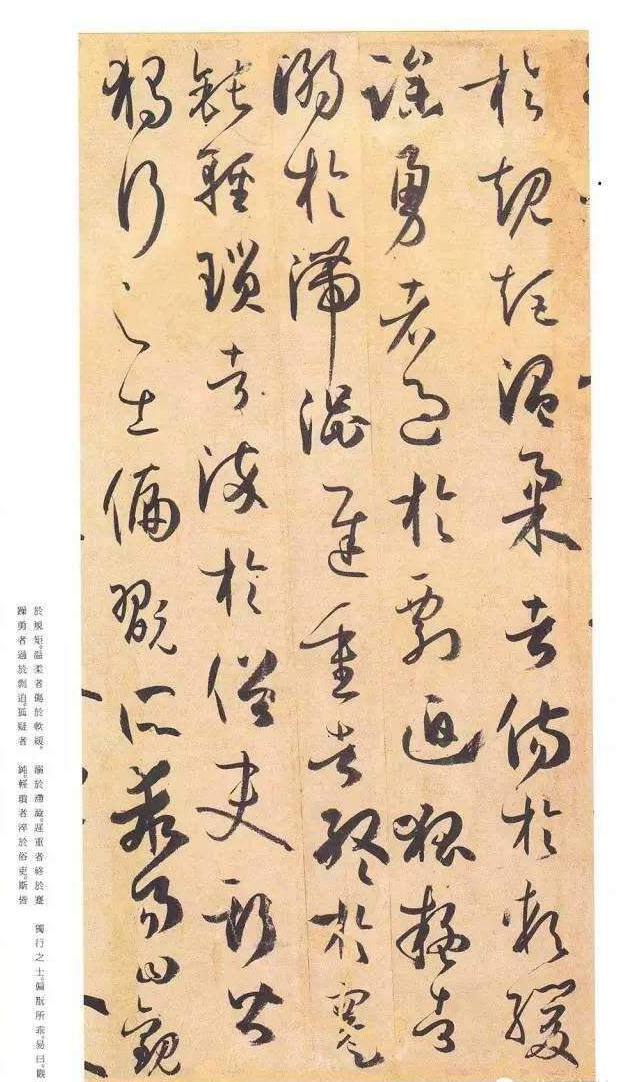 於規矩溫柔者傷於軟緩
躁勇者過於剽迫狐疑者
溺於滯澀遲重者終於蹇
鈍輕瑣者淬於俗吏斯皆
獨行之士偏翫所乖易曰觀
於規矩。溫柔者傷於軟緩。
躁勇者過於剽迫。狐疑者
溺於滯澀。遲重者終於蹇
鈍。輕瑣者淬於俗吏。斯皆
獨行之士。偏翫所乖。易曰。觀